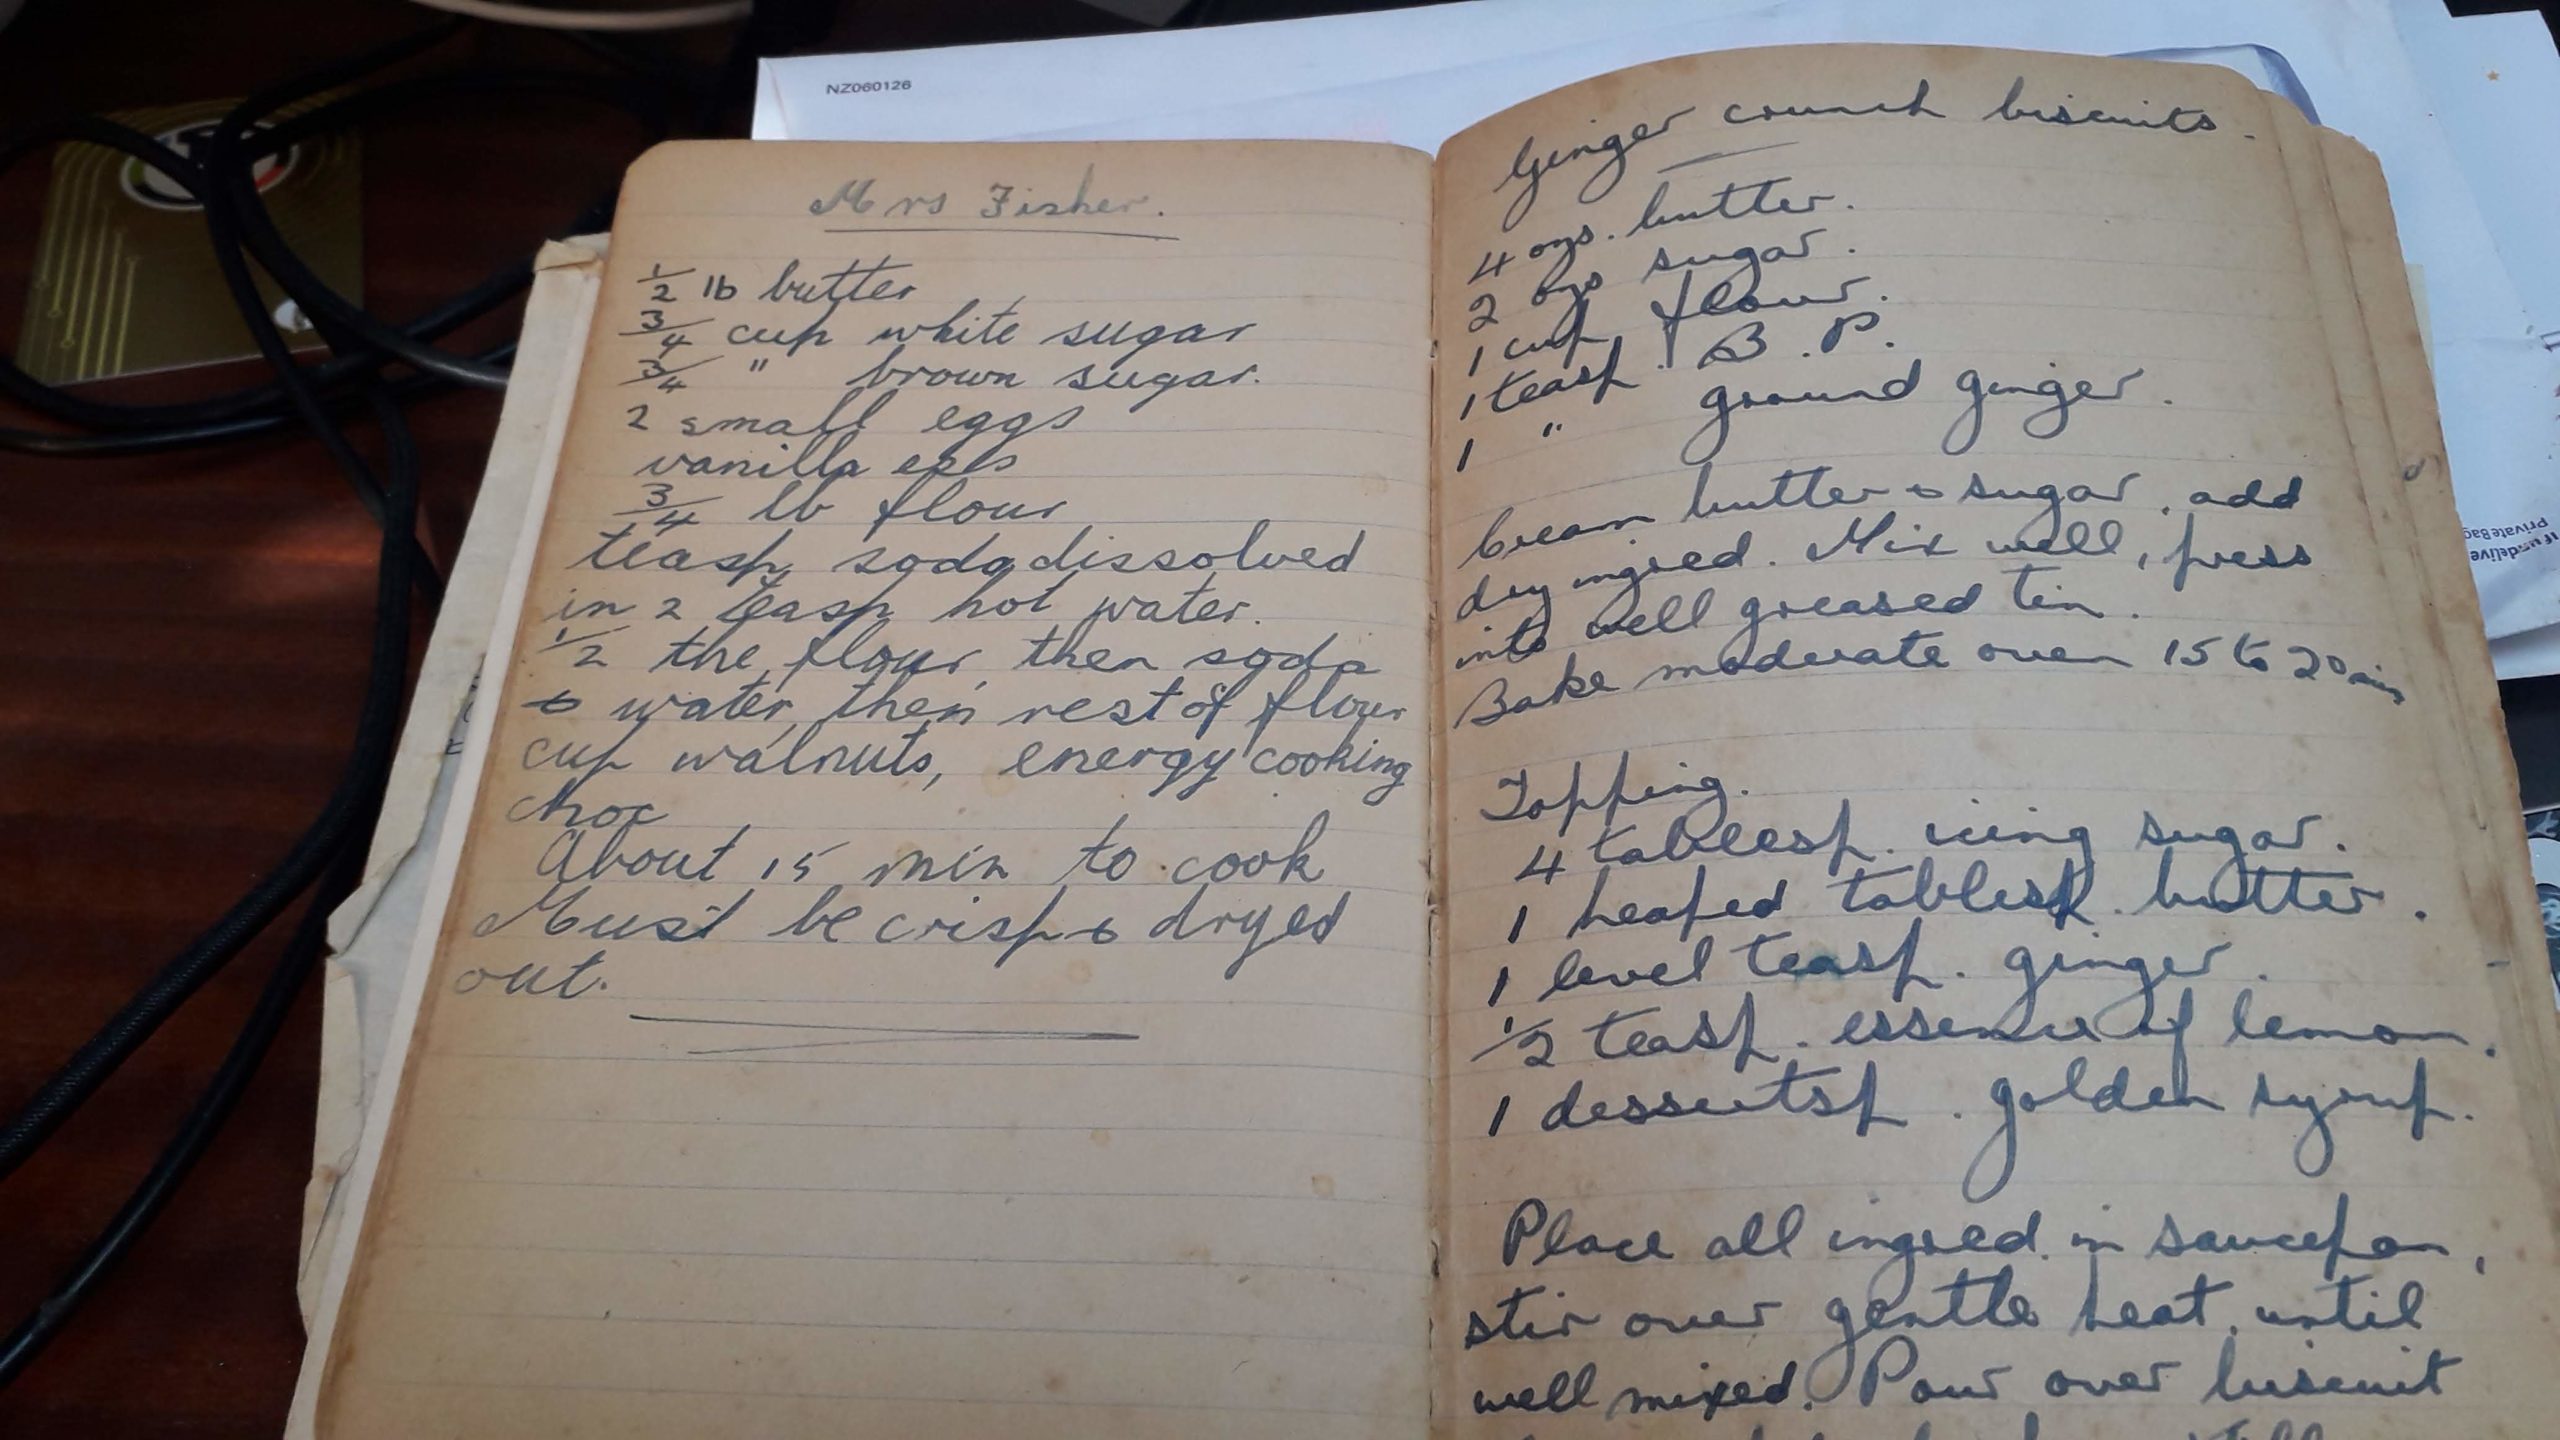 NZ060126
Mrs Fisher.
1/2 lb butter
3/4 cup white sugar
3/4 " brown sugar.
2 small eggs
vanilla ess
3/4 lb flour
teasp soda dissolved
in 2 teasp hot water.
1/2 the flour, then soda
& water, then rest of flour
cup walnuts, energy cooking
choc
About 15 min to cook
Must be crisp & dryed
out.
Ginger crunch biscuits.
4 ozs. butter.
2 ozs sugar.
1 cup flour.
1 teasp. B.P.
1 " ground ginger.
Cream butter & sugar, add
dry ingred. Mix well, press
into well greased tin.
Bake moderate oven 15 to 20 min
Topping.
4 tablesp. icing sugar.
1 heaped tablesp. butter.
1 level teasp. ginger.
1/2 teasp. essence of lemon.
1 dessertsp. golden syrup.
Place all ingred. in saucepan,
stir over gentle heat, until
well mixed. Pour over biscuit
If undelive
Private Bag